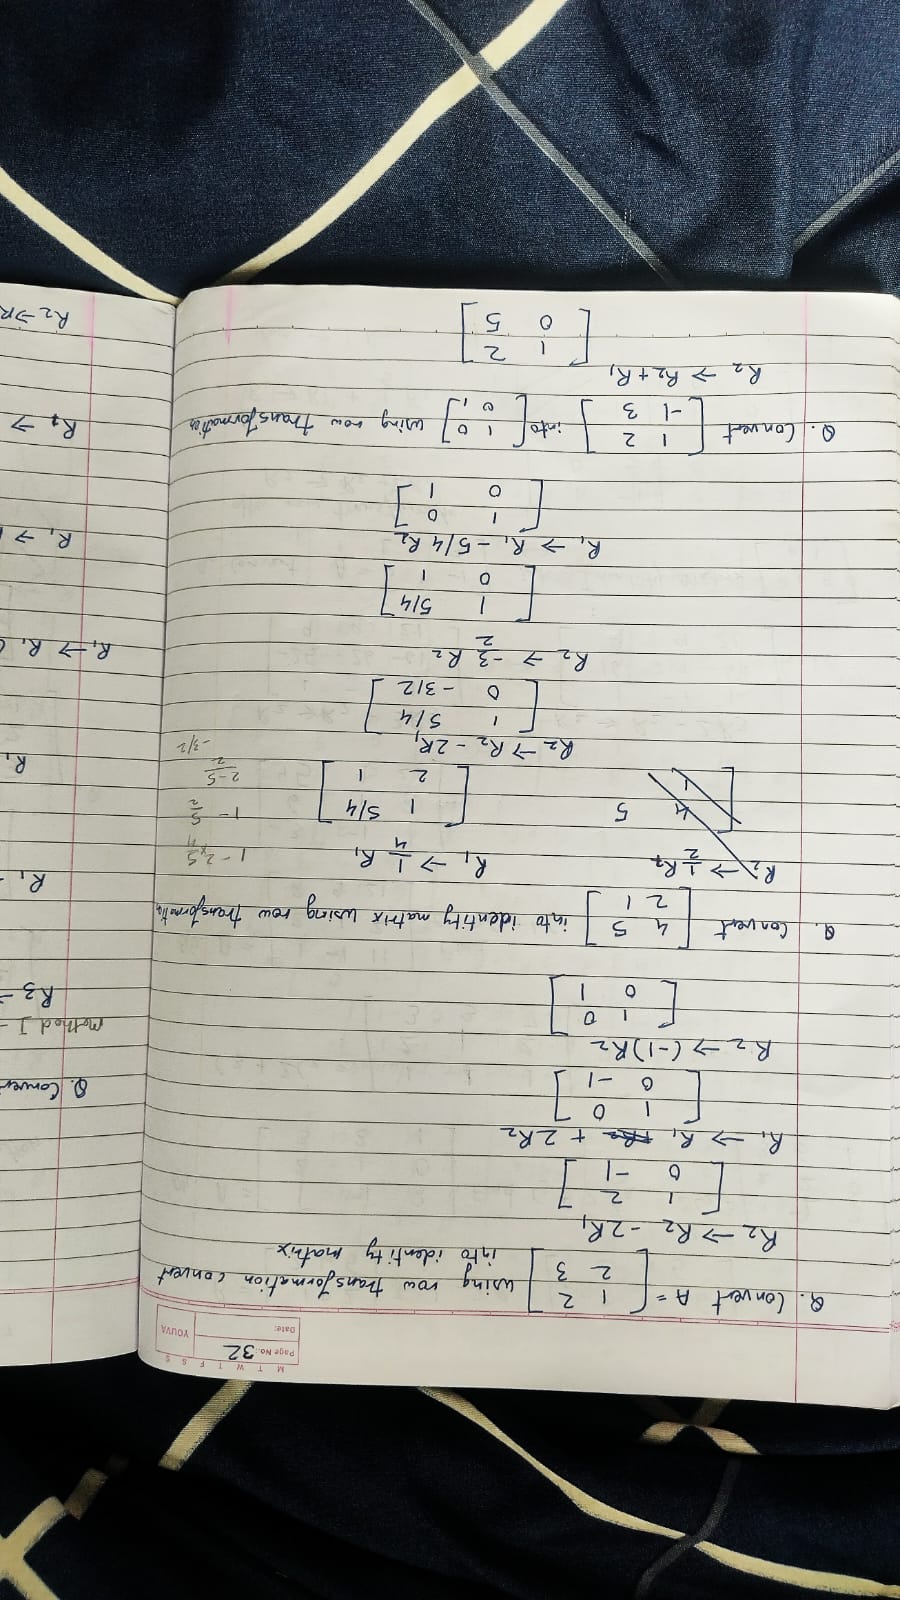 M T W T F S S
Page No.: 32
Date:
YOUVA
Q. Convert A = [ 1 2 using row transformation convert
2 3 ] into identity matrix
R₂ → R₂ - 2R₁
[ 1 2
0 -1 ]
R₁ → R₁ + 2R₂
[ 1 0
0 -1 ]
R₂ → (-1)R₂
[ 1 0
0 1 ]
Q. Convert [ 4 5 into identity matrix using row transformation
2 1 ]
R₂ → 1/2 R₂
[ 4 5
1
R₁ → 1/4 R₁
[ 1 5/4
2 1 ]
1 - 5/2
2-5/2
-3/2
R₂ → R₂ - 2R₁
[ 1 5/4
0 -3/2 ]
R₂ → -3/2 R₂
[ 1 5/4
0 1 ]
R₁ → R₁ - 5/4 R₂
[ 1 0
0 1 ]
Q. Convert [ 1 2 into [ 1 0 using row transformation
-1 3 ] 0 1 ]
R₂ → R₂ + R₁
[ 1 2
0 5 ]
Q. Conver
Method I -
R₃ →
R₁ -
R₁
R₁ → R₁
R₁ →
R₂ → R